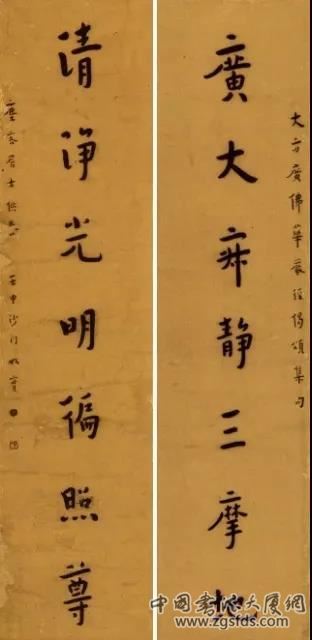 大方廣佛華嚴經偈頌集句
廣大寂靜三摩地
清淨光明徧照尊
居士供養 壬申沙門
中国书法大厦网
www.zgsfds.com